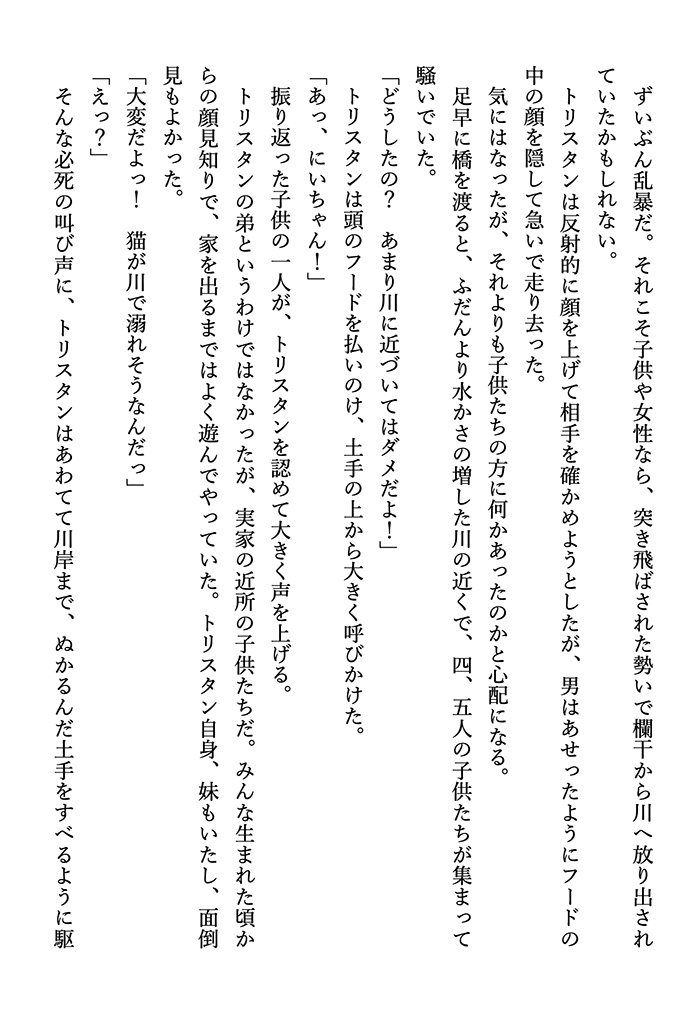 ずいぶん乱暴だ。それこそ子供や女性なら、突き飛ばされた勢いで欄干から川へ放り出され
ていたかもしれない。
　トリスタンは反射的に顔を上げて相手を確かめようとしたが、男はあせったようにフードの
中の顔を隠して急いで走り去った。
　気にはなったが、それよりも子供たちの方に何かあったのかと心配になる。
　足早に橋を渡ると、ふだんより水かさの増した川の近くで、四、五人の子供たちが集まって
騒いでいた。
「どうしたの？　あまり川に近づいてはダメだよ！」
　トリスタンは頭のフードを払いのけ、土手の上から大きく呼びかけた。
「あっ、にいちゃん！」
　振り返った子供の一人が、トリスタンを認めて大きく声を上げる。
　トリスタンの弟というわけではなかったが、実家の近所の子供たちだ。みんな生まれた頃か
らの顔見知りで、家を出るまではよく遊んでやっていた。トリスタン自身、妹もいたし、面倒
見もよかった。
「大変だよっ！　猫が川で溺れそうなんだっ」
「えっ？」
　そんな必死の叫び声に、トリスタンはあわてて川岸まで、ぬかるんだ土手をすべるように駆